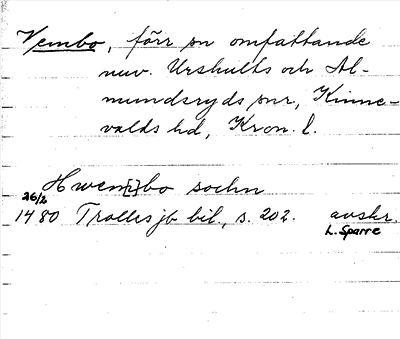 Vembo, förr sn omfattande
nuv. Urshults och Al-
mundsryds snr, Kinne-
valds hd, Kron. l.
Hwem[?]bo sochn
26/2
1480 Trollesjb bil, s. 202. avskr.
L. Sparre